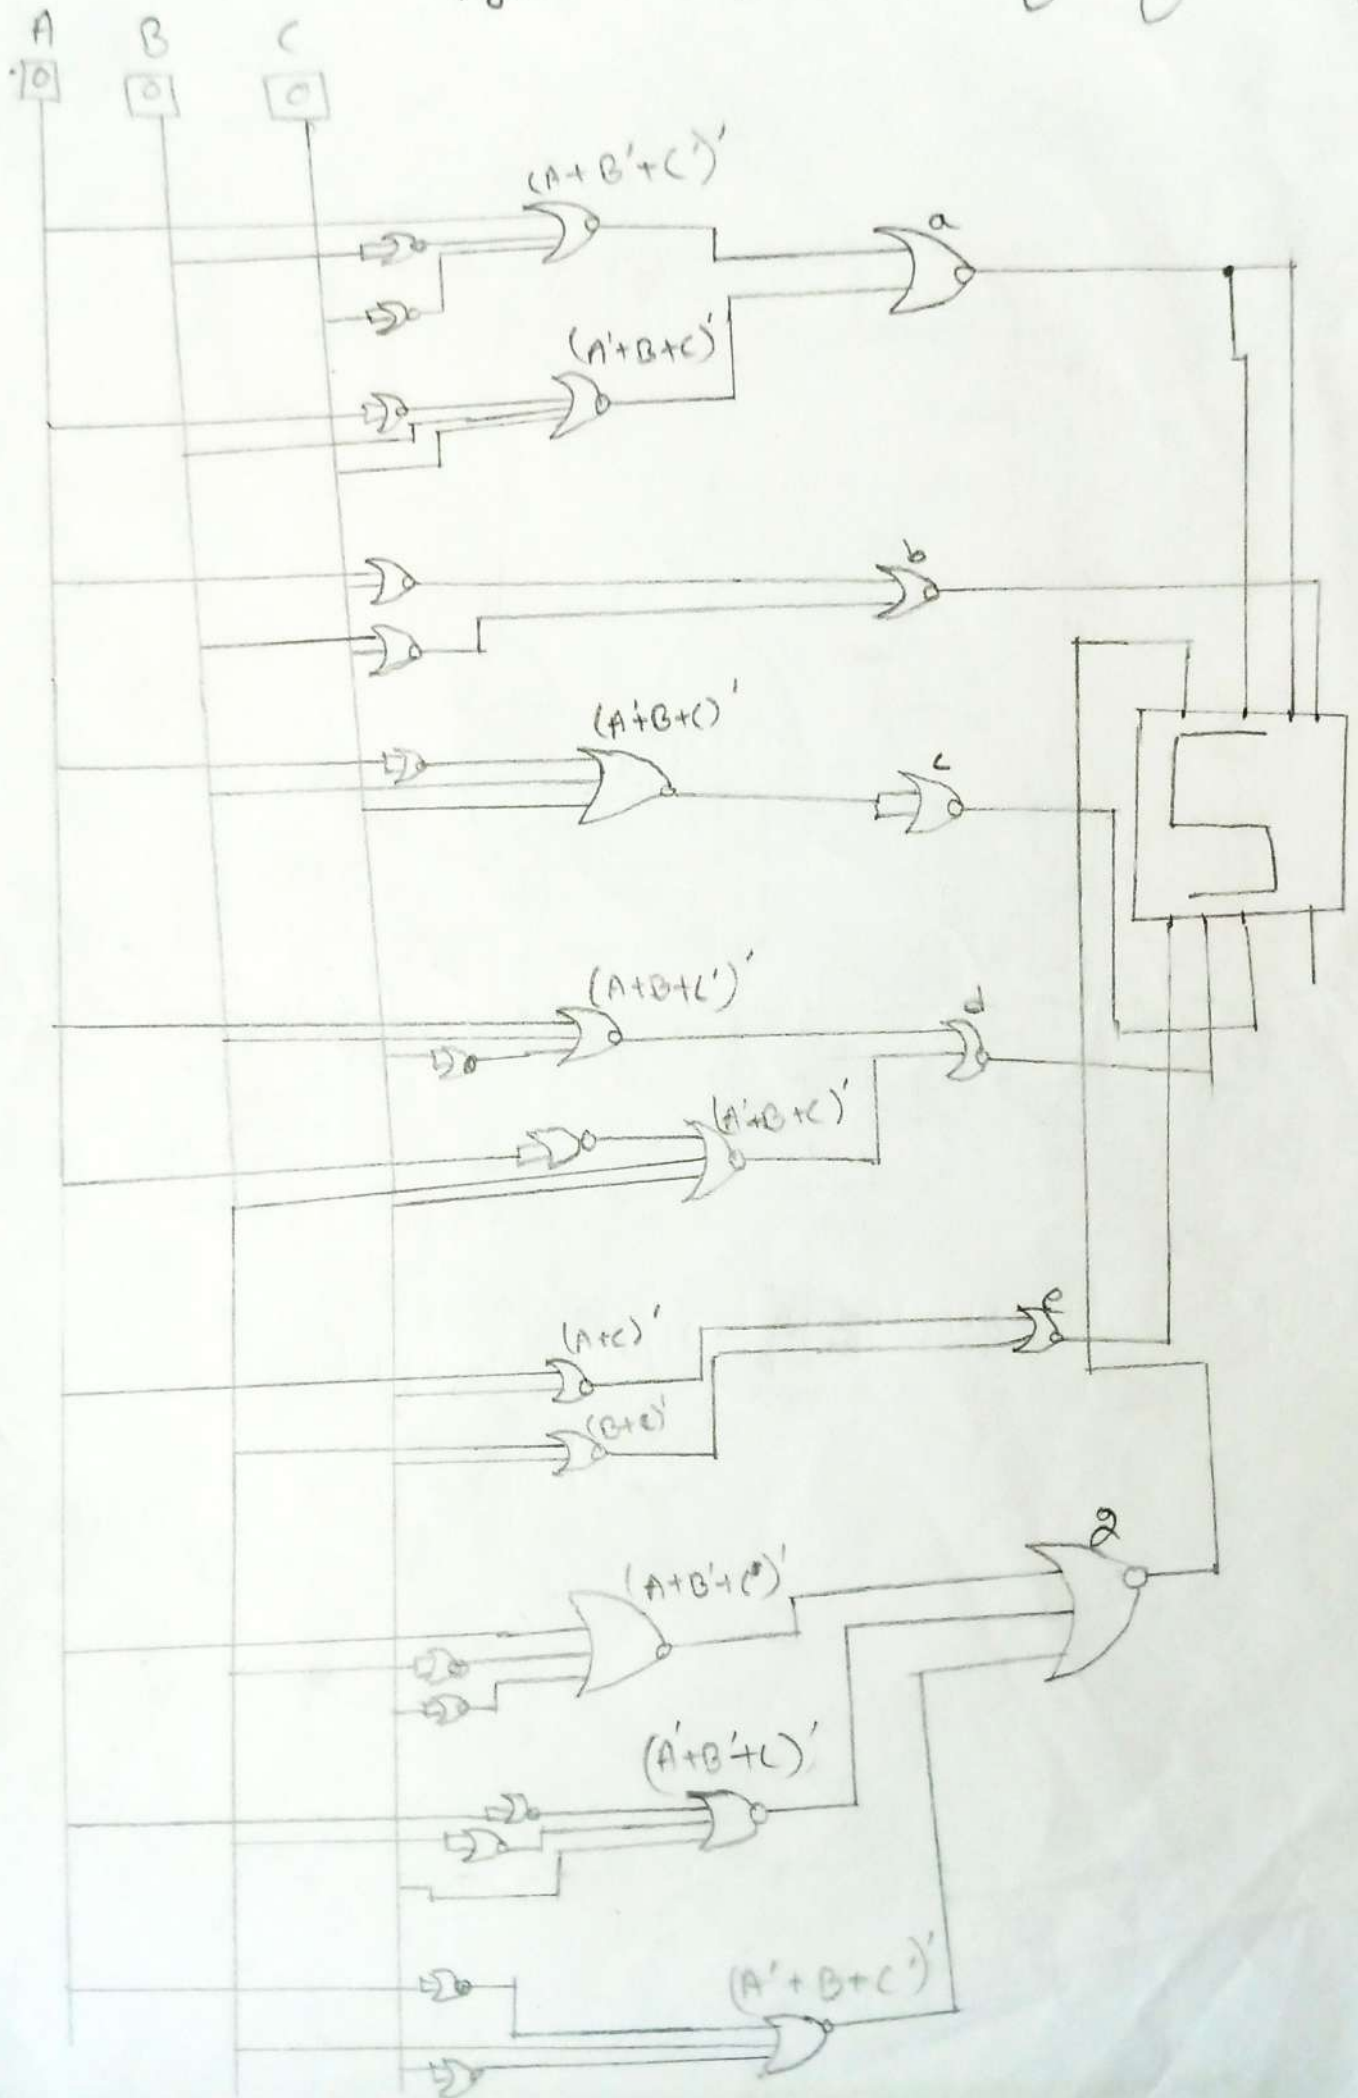 A B C
0 0 0
(A+B'+C')'
a
(A'+B+C)'
b
(A'+B+C)'
c
5
(A+B+C')'
d
(A'+B+C)'
e
(A+C)'
(B+C)'
g
(A+B'+C')'
(A'+B'+C)'
(A'+B+C')'